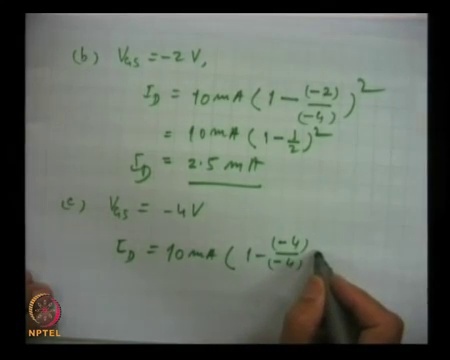 (b) V_GS = -2 V,
I_D = 10 mA ( 1 - (-2)/(-4) )^2
= 10 mA ( 1 - 1/2 )^2
I_D = 2.5 mA
(c) V_GS = -4V
I_D = 10 mA ( 1 - (-4)/(-4)
NPTEL